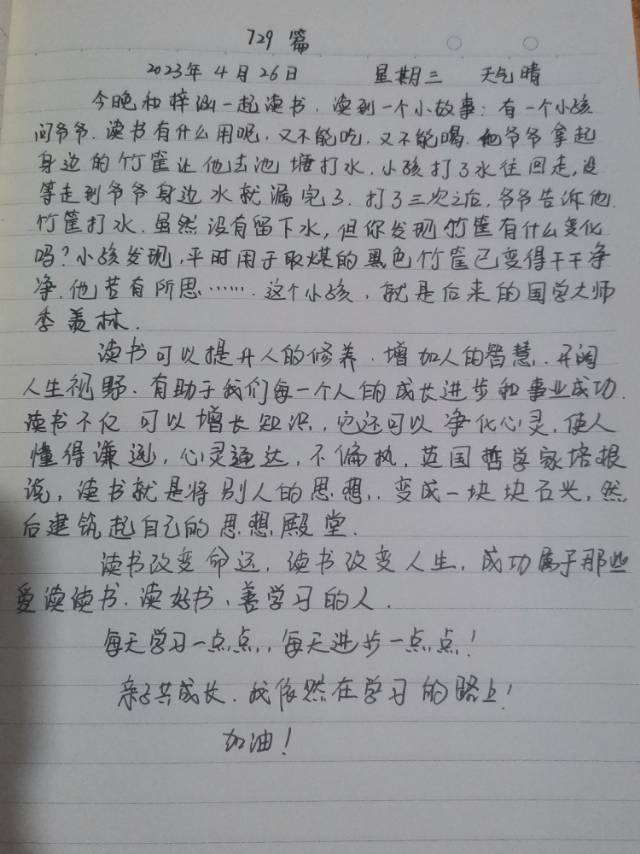 729 篇
2023年4月26日 星期三 天气晴
今晚和梓涵一起读书.读到一个小故事:有一个小孩
问爷爷.读书有什么用呢,又不能吃,又不能喝.他爷爷拿起
身边的竹筐让他去池塘打水.小孩打了水往回走,没
等走到爷爷身边水就漏完了.打了三次之后,爷爷告诉他.
竹筐打水.虽然没有留下水,但你发现竹筐有什么变化
吗?小孩发现,平时用于取煤的黑色竹筐已变得干干净
净.他若有所思……这个小孩,就是后来的国学大师
季羡林.
读书可以提升人的修养.增加人的智慧.开阔
人生视野.有助于我们每一个人的成长进步和事业成功.
读书不仅可以增长知识,它还可以净化心灵,使人
懂得谦逊,心灵通达,不偏执,英国哲学家培根
说,读书就是将别人的思想,变成一块块石头,然
后建筑起自己的思想殿堂.
读书改变命运,读书改变人生,成功属于那些
爱读书.读好书、善学习的人.
每天学习一点点,每天进步一点点!
亲子共成长.我依然在学习的路上!
加油!